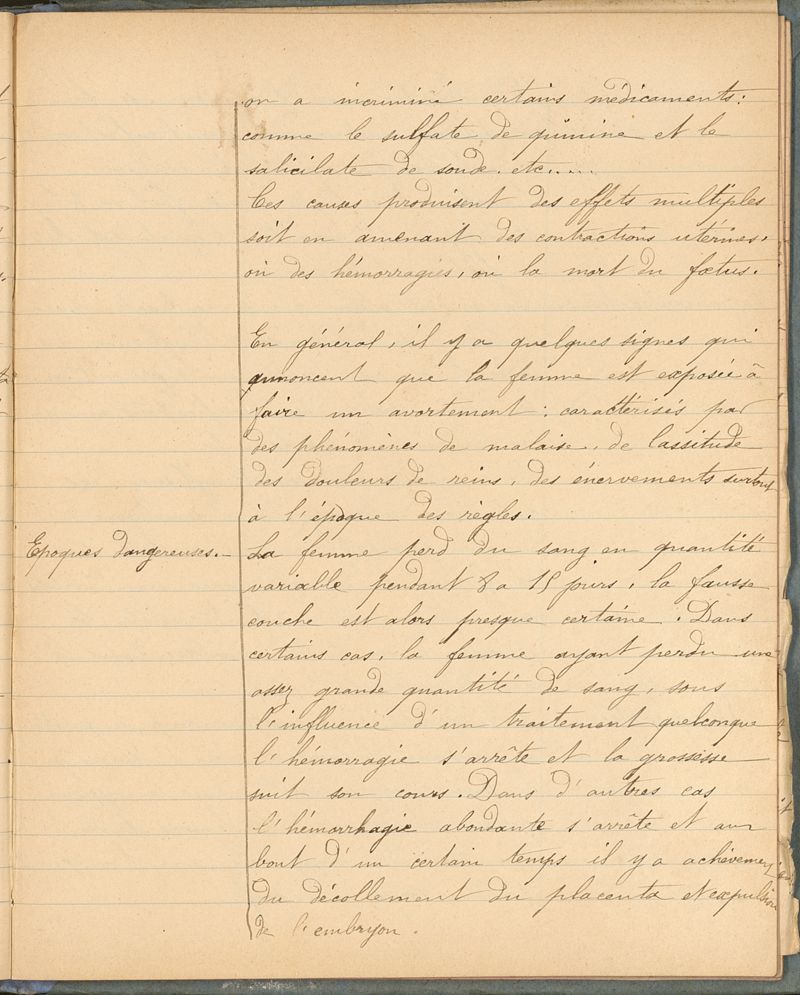 on a incriminé certains médicaments:
comme le sulfate de quinine et le
salicilate de soude. etc.....
Ces causes produisent des effets multiples
soit en amenant des contractions utérines,
où des hémorragies, où la mort du fœtus.
En général, il y a quelques signes qui
annoncent que la femme est exposée à
faire un avortement : caractérisés par
des phénomènes de malaise, de lassitude
des douleurs de reins, des énervements surtout
à l'époque des règles.
Epoques dangereuses. _ La femme perd du sang en quantité
variable pendant 8 a 15 jours, la fausse
couche est alors presque certaine. Dans
certains cas, la femme ayant perdu une
assez grande quantité de sang, sous
l'influence d'un traitement quelconque
l'hémorragie s'arrête et la grossesse
suit son cours. Dans d'autres cas
l'hémorrhagie abondante s'arrête et au
bout d'un certain temps il y a achèvement
du décollement du placenta et expulsion
de l'embryon.